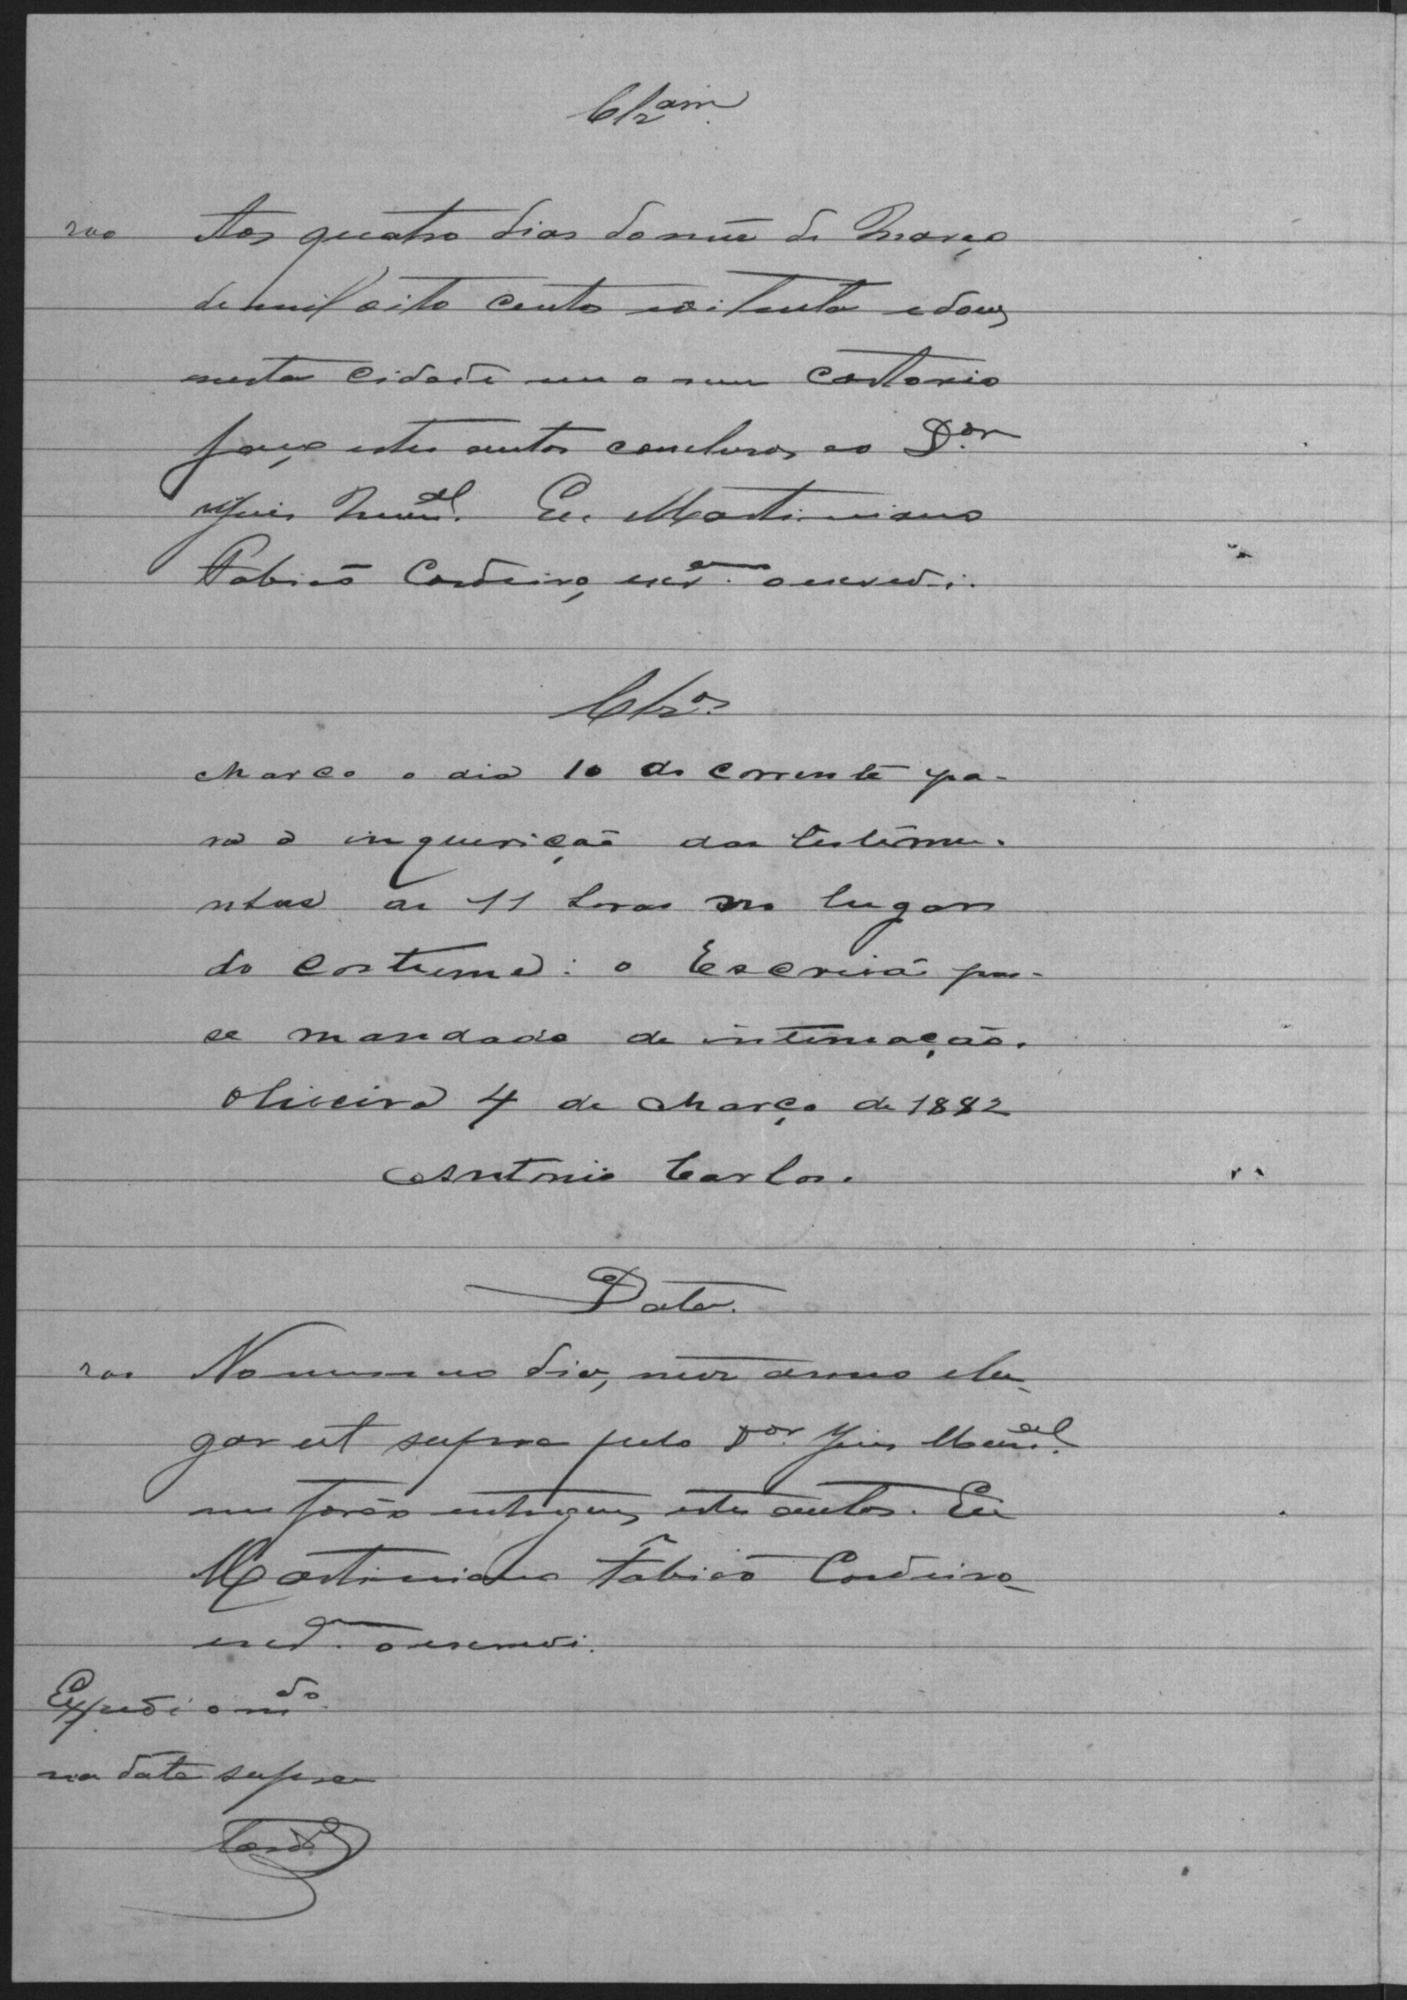 Clzam.
200 Aos quatro dias do mez de Março
de mil oito centos e oitenta e dous,
nesta cidade em o meu cartorio
faço estes autos conclusos ao Dor.
Juis Munal. Eu Martiniano
Fabião Cordeiro, escram. o escrevi.
Clzos
Marco o dia 10 do corrente pa-
ra a inquerição das testemu-
nhas as 11 horas no lugar
do costume: o Escrivão pas-
se mandado de intimação.
Oliveira 4 de Março de 1882
Antonio Carlos.
Data.
200 No mesmo dia, mez anno e lu-
gar ut supra pelo Dor. Juis Munal.
me forão entregues estes autos. Eu
Martiniano Fabião Cordeiro
escram. o escrevi.
Expedi o mdo.
na data supra
Cordo